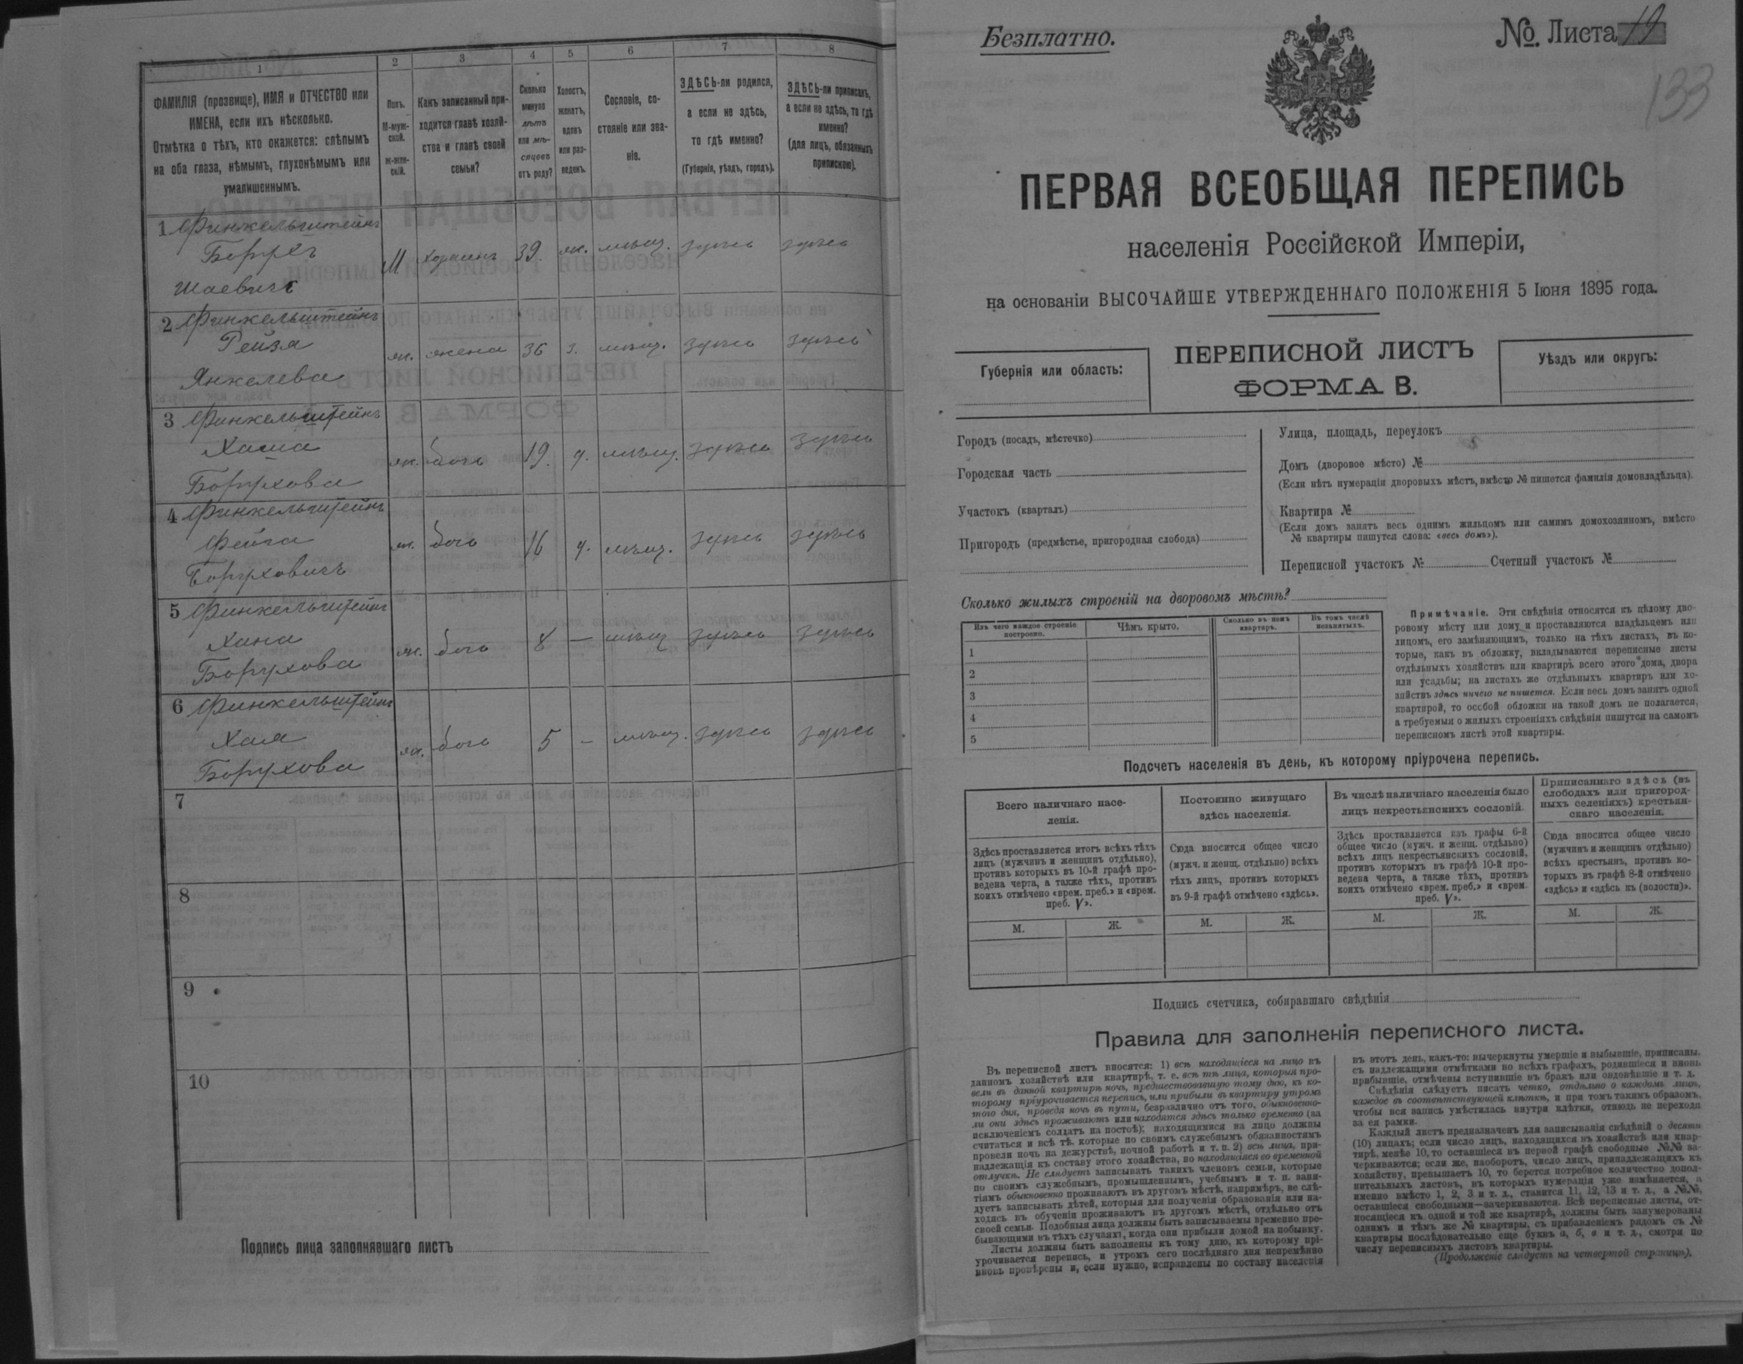 1
2
3
4
5
6
7
8
ФАМИЛІЯ (прозвище), ИМЯ и ОТЧЕСТВО или
ИМЕНА, если ихъ нѣсколько.
Отмѣтка о тѣхъ, кто окажется: слѣпымъ
на оба глаза, нѣмымъ, глухонѣмымъ или
умалишеннымъ.
Полъ.
М-муж-
ской.
ж-жен-
скій.
Какъ записанный при-
ходится главѣ хозяй-
ства и главѣ своей
семьи?
Сколько
минуло
лѣтъ
или мѣ-
сяцевъ
отъ роду?
Холостъ,
женатъ,
вдовъ
или раз-
веденъ.
Сословіе, со-
стояніе или зва-
ніе.
ЗДѢСЬ-ли родился,
а если не здѣсь,
то гдѣ именно?
(Губернія, уѣздъ, городъ).
ЗДѢСЬ-ли приписанъ,
а если не здѣсь, то гдѣ
именно?
(для лицъ, обязанныхъ
припискою).
1 Финкельштейнъ
Борухъ
Шаевичъ
М хозяинъ 39. ж. мѣщ. здѣсь здѣсь
2 Финкельштейнъ
Рейза
Янкелева
ж. жена 36 з. мѣщ. здѣсь здѣсь
3 Финкельштейнъ
Хаша
Борухова
ж. дочь 19. д. мѣщ. здѣсь здѣсь
4 Финкельштейнъ
Фейга
Боруховичъ
ж. дочь 16 д. мѣщ. здѣсь здѣсь
5 Финкельштейнъ
Хана
Борухова
ж. дочь 8 — мѣщ здѣсь здѣсь
6 Финкельштейнъ
Хая
Борухова
ж. дочь 5 — мѣщ. здѣсь здѣсь
7
8
9
10
Подпись лица заполнявшаго листъ
Безплатно.
№ Листа 19
133
ПЕРВАЯ ВСЕОБЩАЯ ПЕРЕПИСЬ
населенія Россійской Имперіи,
на основаніи ВЫСОЧАЙШЕ УТВЕРЖДЕННАГО ПОЛОЖЕНІЯ 5 Іюня 1895 года.
Губернія или область:
ПЕРЕПИСНОЙ ЛИСТЪ
ФОРМА В.
Уѣздъ или округъ:
Городъ (посадъ, мѣстечко)
Городская часть
Участокъ (кварталъ)
Пригородъ (предмѣстье, пригородная слобода)
Улица, площадь, переулокъ
Домъ (дворовое мѣсто) №
(Если нѣтъ нумераціи дворовыхъ мѣстъ, вмѣсто № пишется фамилія домовладѣльца).
Квартира №
(Если домъ занятъ весь однимъ жильцомъ или самимъ домохозяиномъ, вмѣсто
№ квартиры пишутся слова: «весь домъ»).
Переписной участокъ № Счетный участокъ №
Сколько жилыхъ строеній на дворовомъ мѣстѣ?
Изъ чего каждое строеніе
построено.
Чѣмъ крыто.
Сколько въ немъ
квартиръ.
Въ томъ числѣ
незанятыхъ.
1
2
3
4
5
Примѣчаніе. Эти свѣдѣнія относятся къ цѣлому дво-
ровому мѣсту или дому и проставляются владѣльцемъ или
лицомъ, его замѣняющимъ, только на тѣхъ листахъ, въ ко-
торые, какъ въ обложку, вкладываются переписные листы
отдѣльныхъ хозяйствъ или квартиръ всего этого дома, двора
или усадьбы; на листахъ же отдѣльныхъ квартиръ или хо-
зяйствъ здѣсь ничего не пишется. Если весь домъ занятъ одной
квартирой, то особой обложки на такой домъ не полагается,
а требуемыя о жилыхъ строеніяхъ свѣдѣнія пишутся на самомъ
переписномъ листѣ этой квартиры.
Подсчетъ населенія въ день, къ которому пріурочена перепись.
Всего наличнаго насе-
ленія.
Здѣсь проставляется итогъ всѣхъ тѣхъ
лицъ (мужчинъ и женщинъ отдѣльно),
противъ которыхъ въ 10-й графѣ про-
ведена черта, а также тѣхъ, противъ
коихъ отмѣчено «врем. преб.» и «врем.
преб. V».
Постоянно живущаго
здѣсь населенія.
Сюда вносится общее число
(мужч. и женщ. отдѣльно) всѣхъ
тѣхъ лицъ, противъ которыхъ
въ 9-й графѣ отмѣчено «здѣсь».
Въ числѣ наличнаго населенія было
лицъ некрестьянскихъ сословій.
Здѣсь проставляется изъ графы 6-й
общее число (мужч. и женщ. отдѣльно)
всѣхъ лицъ некрестьянскихъ сословій,
противъ которыхъ въ графѣ 10-й про-
ведена черта, а также тѣхъ, противъ
коихъ отмѣчено «врем. преб.» и «врем.
преб. V».
Приписаннаго здѣсь (въ
слободахъ или пригород-
ныхъ селеніяхъ) крестьян-
скаго населенія.
Сюда вносится общее число
(мужчинъ и женщинъ отдѣльно)
всѣхъ крестьянъ, противъ ко-
торыхъ въ графѣ 8-й отмѣчено
«здѣсь» и «здѣсь къ (волости)».
М. Ж. М. Ж. М. Ж. М. Ж.
Подпись счетчика, собиравшаго свѣдѣнія
Правила для заполненія переписного листа.
Въ переписной листъ вносятся: 1) всѣ находящіеся на лицо въ
данномъ хозяйствѣ или квартирѣ, т. е. всѣ тѣ лица, которыя про-
вели въ данной квартирѣ ночь, предшествовавшую тому дню, къ ко-
торому пріурочивается перепись, или прибыли въ квартиру утромъ
того дня, проведя ночь въ пути, безразлично отъ того, обыкновенно-
ли они здѣсь проживаютъ или находятся здѣсь только временно (за
исключеніемъ солдатъ на постоѣ); находящимися на лицо должны
считаться и всѣ тѣ, которые по своимъ служебнымъ обязанностямъ
провели ночь на дежурствѣ, ночной работѣ и т. п. 2) всѣ лица, при-
надлежащія къ составу этого хозяйства, но находящіяся во временной
отлучкѣ. Не слѣдуетъ записывать такихъ членовъ семьи, которые
по своимъ служебнымъ, промышленнымъ, учебнымъ и т. п. заня-
тіямъ обыкновенно проживаютъ въ другомъ мѣстѣ, напримѣръ, не слѣ-
дуетъ записывать дѣтей, которыя для полученія образованія или на-
ходясь въ обученіи проживаютъ въ другомъ мѣстѣ, отдѣльно отъ
своей семьи. Подобныя лица должны быть записываемы временно пре-
бывающими въ тѣхъ случаяхъ, когда они прибыли домой на побывку.
Листы должны быть заполнены къ тому дню, къ которому прі-
урочивается перепись, и утромъ сего послѣдняго дня непремѣнно
вновь провѣрены и, если нужно, исправлены по составу населенія
въ этотъ день, какъ-то: вычеркнуты умершіе и выбывшіе, приписаны,
съ надлежащими отмѣтками во всѣхъ графахъ, родившіеся и вновь
прибывшіе, отмѣчены вступившіе въ бракъ или овдовѣвшіе и т. д.
Свѣдѣнія слѣдуетъ писать четко, отдѣльно о каждомъ лицѣ,
каждое въ соотвѣтствующей клѣткѣ, и при томъ такимъ образомъ,
чтобы вся запись умѣстилась внутри клѣтки, отнюдь не переходя
за ея рамки.
Каждый листъ предназначенъ для записыванія свѣдѣній о десяти
(10) лицахъ; если число лицъ, находящихся въ хозяйствѣ или квар-
тирѣ, менѣе 10, то оставшіеся въ первой графѣ свободные №№ за-
черкиваются; если же, наоборотъ, число лицъ, принадлежащихъ къ
хозяйству, превышаетъ 10, то берется потребное количество допол-
нительныхъ листовъ, въ которыхъ нумерація уже измѣняется, а
именно вмѣсто 1, 2, 3 и т. д., ставится 11, 12, 13 и т. д., а №№,
оставшіеся свободными—зачеркиваются. Всѣ переписные листы, от-
носящіеся къ одной и той же квартирѣ, должны быть занумерованы
однимъ и тѣмъ же № квартиры, съ прибавленіемъ рядомъ съ №
квартиры послѣдовательно еще буквъ а, б, в и т. д., смотря по
числу переписныхъ листовъ квартиры.
(Продолженіе слѣдуетъ на четвертой страницѣ).